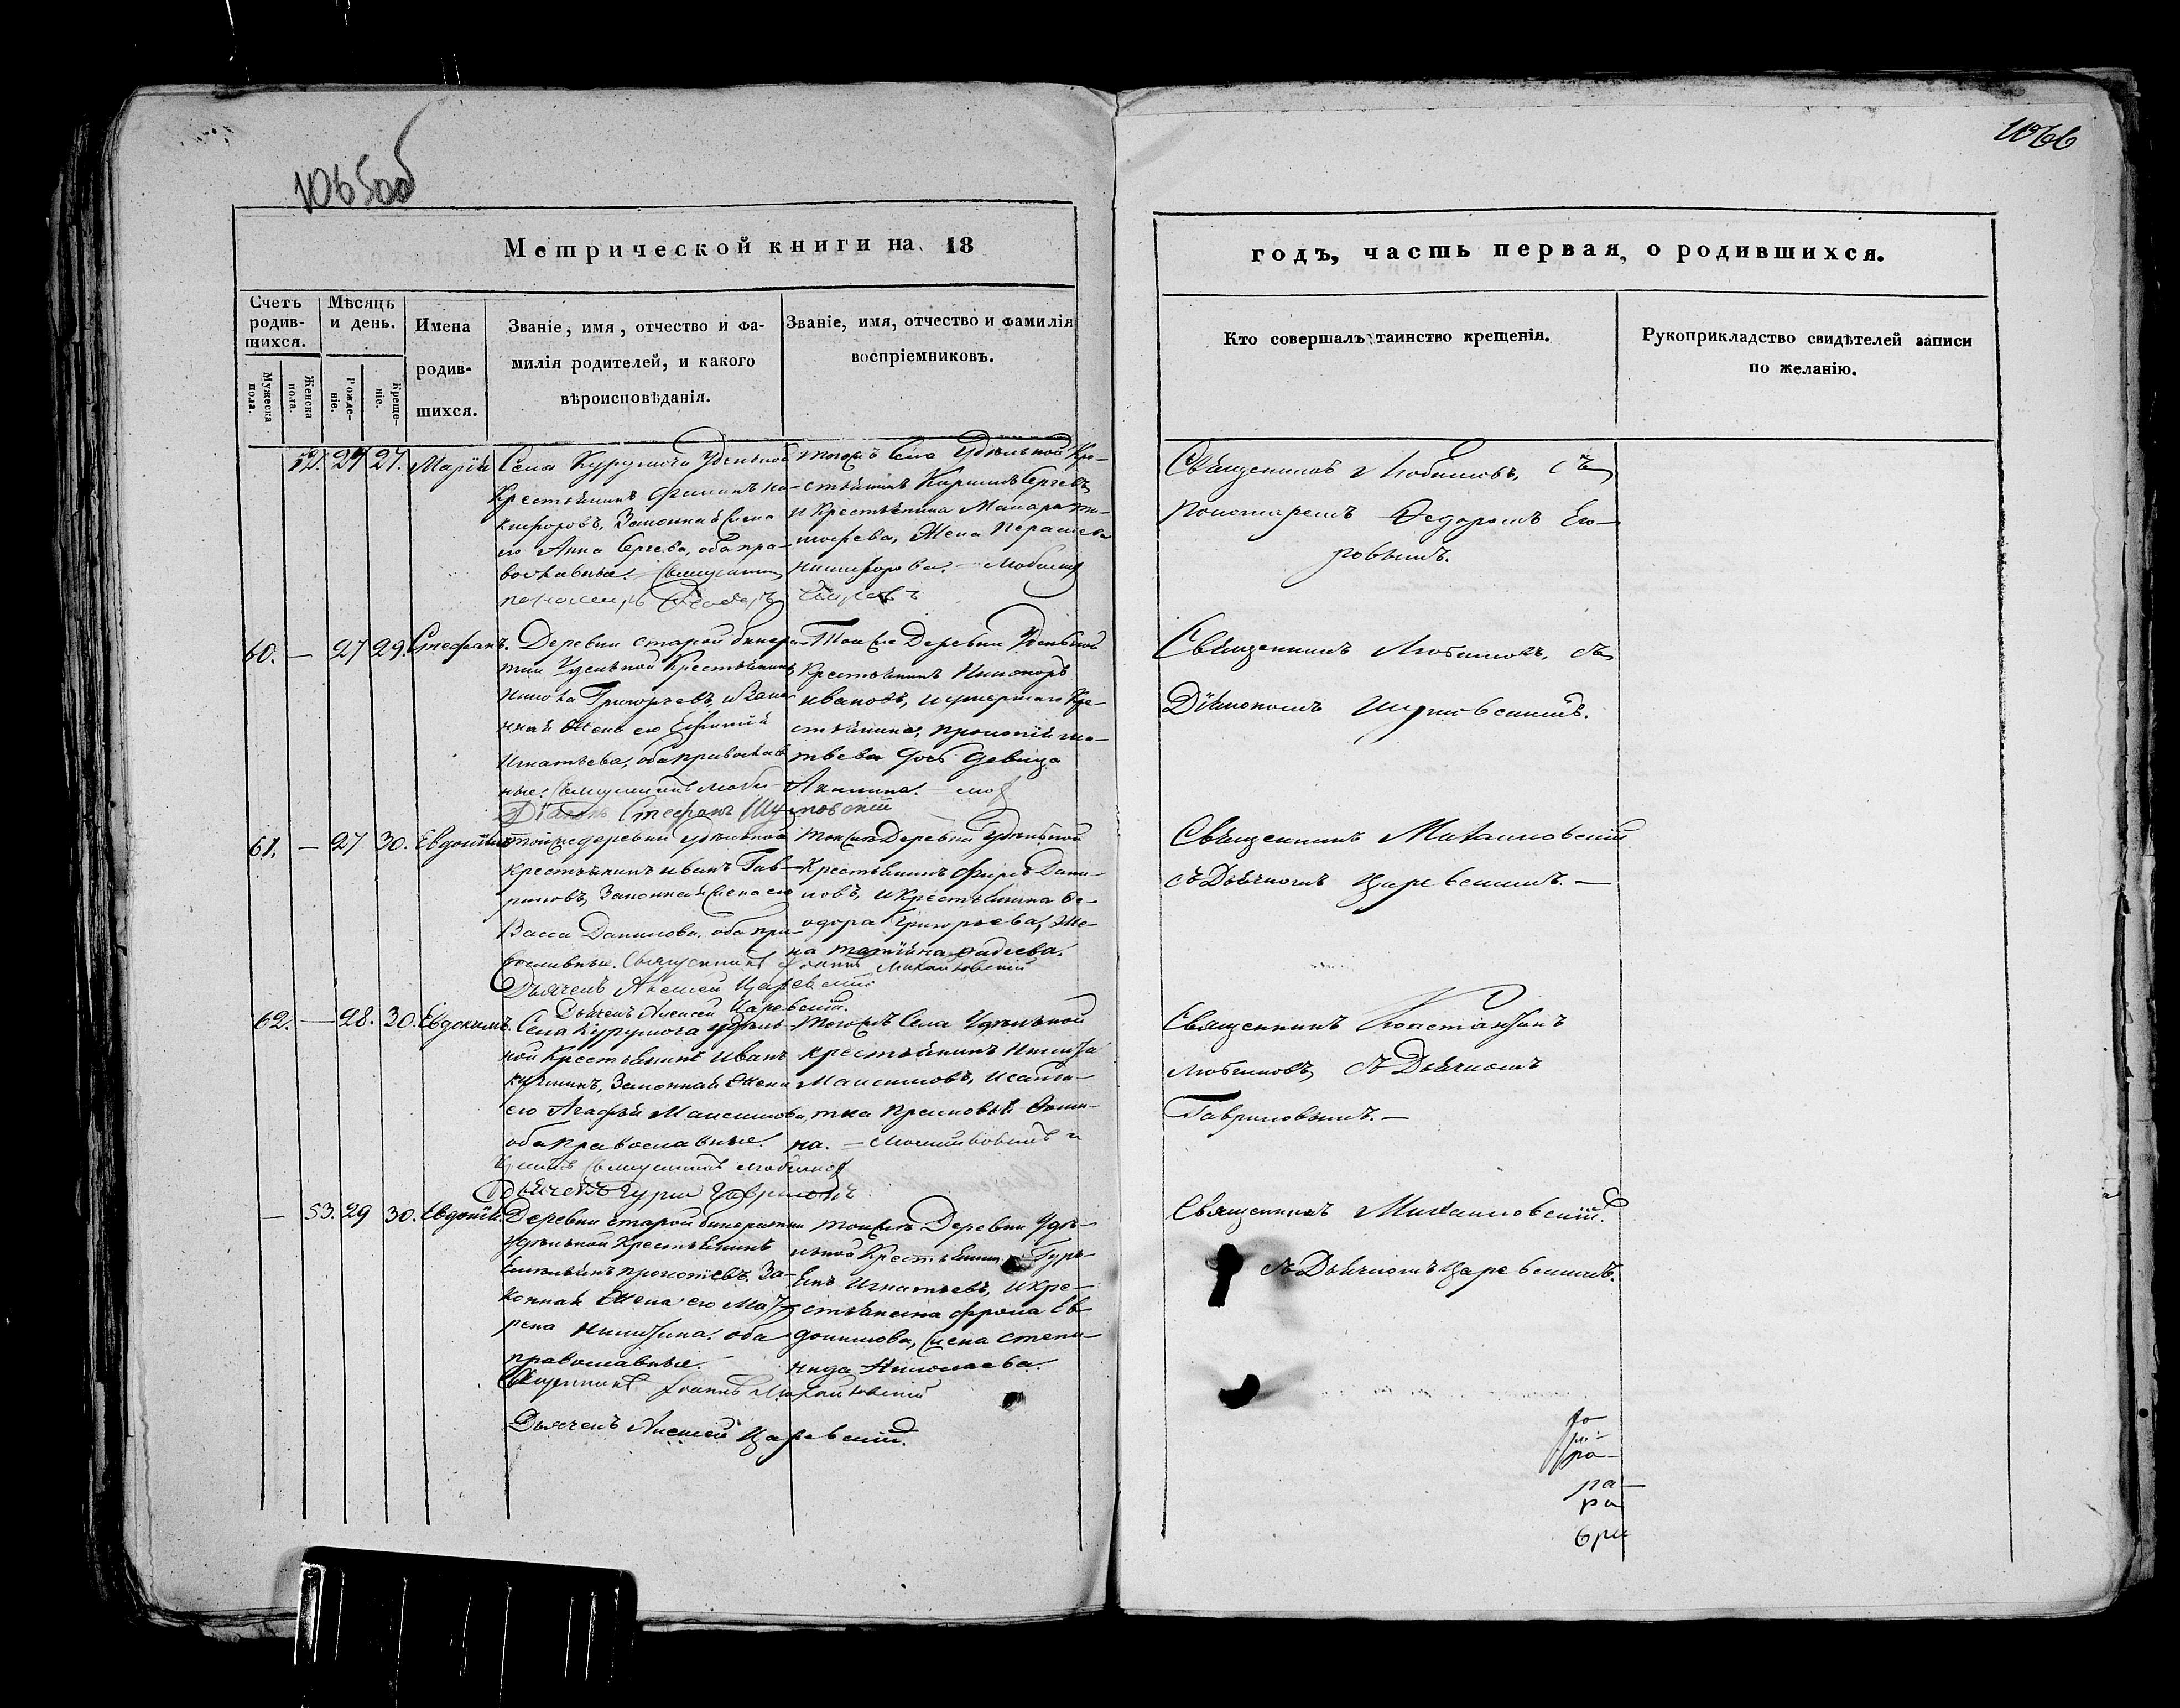 1065об
1066
Метрической книги на 18
годъ, часть первая, о родившихся.
Счетъ родив-шихся.
Мѣсяцъ и день.
Имена родив-шихся.
Званіе, имя, отчество и фа-
милія родителей, и какого
вѣроисповѣданія.
Званіе, имя, отчество и фамилія
воспріемниковъ.
Мужеска пола.
Женска пола.
Рожде-ніе.
Креще-ніе.
Кто совершалъ таинство крещенія.
Рукоприкладство свидѣтелей записи
по желанію.
52. 27 27. Марія
Села Курумоча Удѣльной
Крестьянинъ
Законная жена
его Анна Сергева, оба пра-
вославные. Священникъ
Тогожъ Села Удѣльной Кре-
стьянинъ Сергевъ
и Крестьянина
жена
Никифорова. Любимовъ
Священникъ Любимовъ, съ
пономаремъ Ѳедоромъ Его-
ровымъ.
60. — 27 29. Стефанъ.
Деревни старой бинера-
тки Удѣльной Крестьянинъ
Григорьевъ, и Зако-
нная жена его
Игнатьева, оба православ
ные. Священникъ Люби-
Діаконъ Стефанъ Шумовскій
Тои же Деревни Удѣльной
Крестьянинъ Никаноръ
Ивановъ, и умершаго Кре-
стьянина, Прокопія Ма-
твева дочь девица
Акилина. мов
Священникъ Любимовъ, съ
Діакономъ Шумовскимъ.
61. — 27 30. Евдокимъ
Тойже деревни Удѣльной
Крестьянинъ Иванъ Гав-
риловъ, Законная жена его
Васса Данилова, оба пра-
вославные. Священникъ Іоаннъ Михайловскій
Дьячекъ Алексей Царевскій
Тойже Деревни Удѣльной
Крестьянинъ Фирсъ Дани-
ловъ, и Крестьянина Ѳе-
одора Григорьева, же-
на Татіяна Фадеева.
Священникъ Михаиловскій
съ Дьячкомъ Царевскимъ. —
Дьячекъ Алексей Царевскій.
62. — 28. 30. Евдокимъ.
Села Курумоча Удѣль-
ной Крестьянинъ Иванъ
Кузминъ, Законная жена
его Агафья Максимова,
оба православные.
Священникъ Любимовъ
Дьячекъ Гурій Гавриловъ
Тогожъ Села Удѣльной
крестьянинъ Никита
Максимовъ, и салда-
тка Ѳоми-
на. —
Священникъ Константинъ
Любимовъ, съ Дьячкомъ
Гавриловымъ. —
— 53. 29 30. Евдокія.
Деревни старой бинератки
Удѣльной Крестьянинъ
Емельянъ Прокопіевъ, За-
конная жена его Мат-
рена Никитина. оба
православные.
Священникъ Іоаннъ Михайловскій
Дьячекъ Алексей Царевскій.
Тойже Деревни Удѣ-
льной Крестьянинъ Гурь-
янъ Игнатьевъ, и кре-
стьянина Фрола Ев-
докимова, жена Степа-
нида Николаева.
Священникъ Михаиловскій.
съ Дьячкомъ Царевскимъ.
ра-
ра-
ра